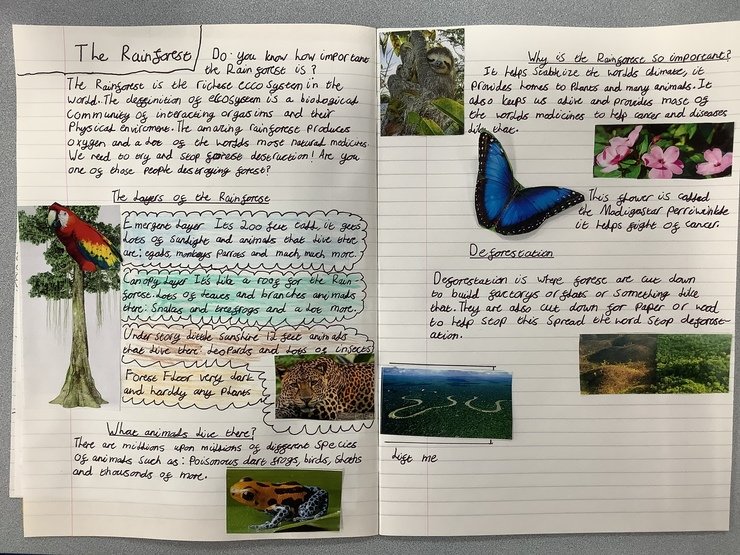 The Rainforest
Do you know how important
the Rainforest is?
The Rainforest is the richest ecco system in the
world. The deffinition of ecosystem is a biological
Community of interacting orgasims and their
Physical enviroment. The amazing rainforest produces
oxygen and a lot of the worlds most natural medicines.
We need to try and stop forest destruction! Are you
one of those people destroying forest?
The Layers of the Rainforest
Emergent Layer It's 200 feet tall, it gets
lots of sunlight and animals that live there
are; egals, monkeys Parrots and much, much more.
Canopy Layer It's like a roof for the Rain
forest. Lots of leaves and branches animals
there: Snakes and treefrogs and a lot more.
Under story little sunshine 12 feet animals
that live there: leopards and lots of insects
Forest Floor very dark
and harddy any plants
What animals live there?
There are millions upon millions of different species
of animals such as: Poisonous dart frogs, birds, sloths
and thousands of more.
Why is the Rainforest so important?
It helps stablize the worlds climate, it
provides homes to plants and many animals. It
also keeps us alive and provides most of
the worlds medicines to help cancer and diseases
like that.
This flower is called
the Madigastar perriwinkle
it helps fight of cancer.
Deforestation
Deforestation is where forest are cut down
to build factorys or flats or something like
that. They are also cut down for paper or wood
to help stop this spread the word stop deforest-
ation.
Lift me